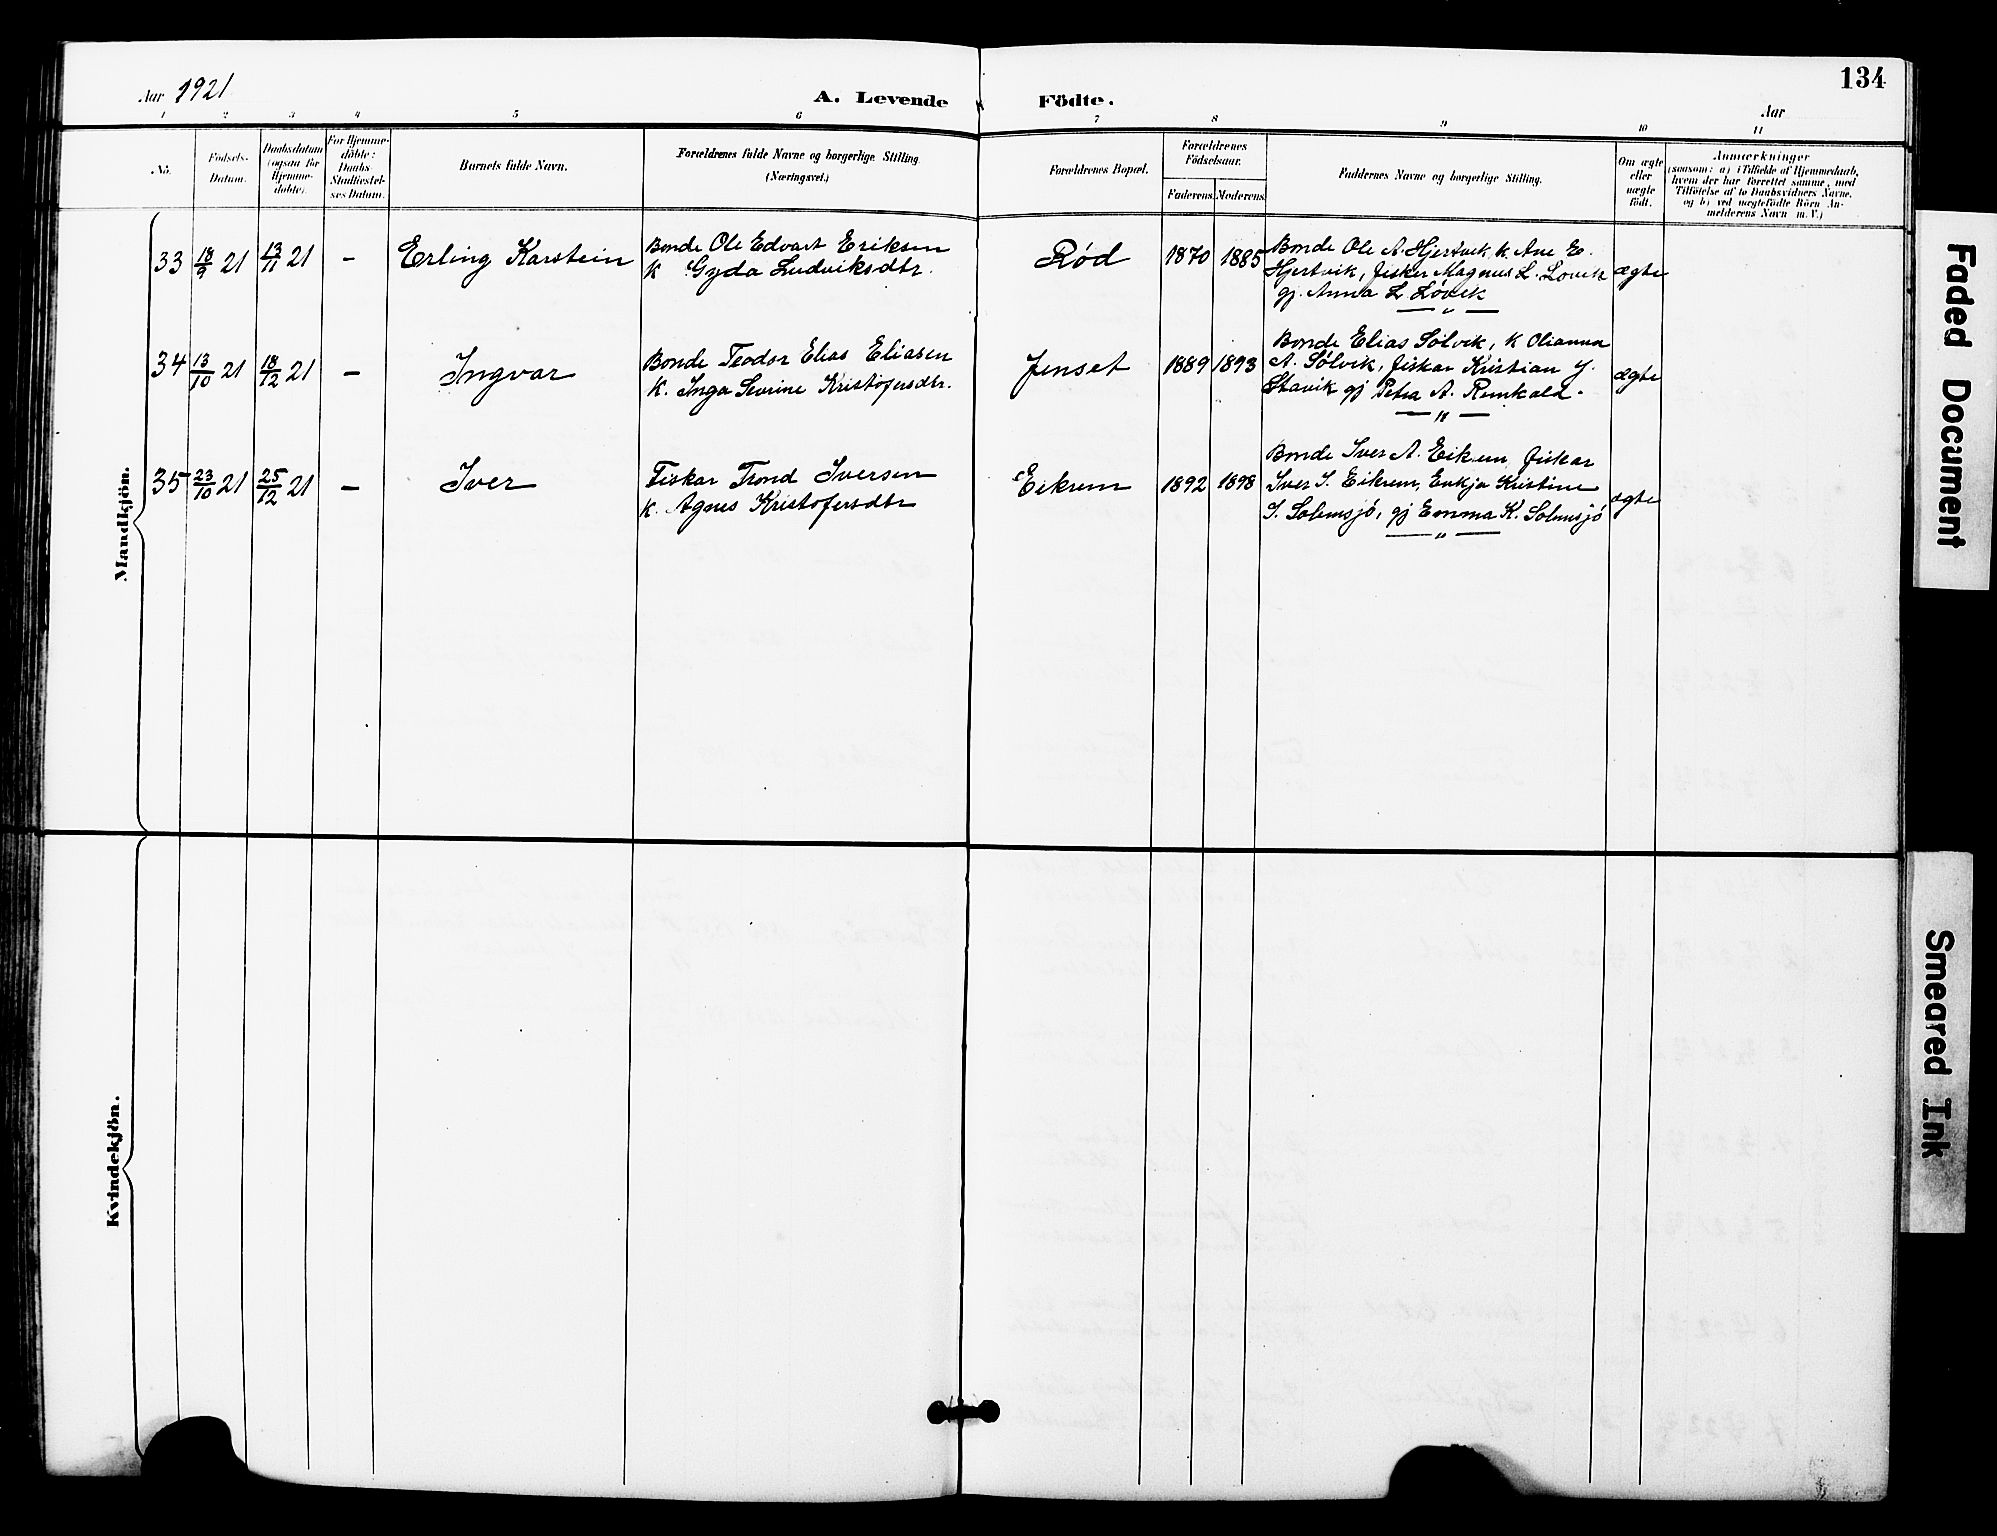 134
Aar 1921
A. Levende Födte.
Aar
1 2 3 4 5 6 7 8 9 10 11
No.
Födsels-
Datum.
Daabsdatum
(ogsaa for
Hjemme-
döbte).
For Hjemme-
döbte:
Daabs-
Stadfæstel-
ses Datum.
Barnets fulde Navn.
Forældrenes fulde Navne og borgerlige Stilling.
(Næringsvei.)
Forældrenes Bopæl.
Forældrenes
Födselsaar.
Faderens. Moderens.
Faddernes Navne og borgerlige Stilling.
Om ægte
eller
uægte
født.
Anmærkninger
(saasom: a) i Tilfælde af Hjemmedaab,
hvem der har forrettet samme, med
Tilföielse af to Daabsvidners Navne,
og b) ved uægtefödte Börn An-
melderens Navn m. V.)
Mandkjön.
33 18/9 21 13/11 21 – Erling Karstein
Bonde Ole Edvart Eriksen
K Gyda Ludviksdtr.
Rød 1870 1885
Bonde Ole A. Hjertvik, k. Ane E.
Hjertvik, fisker Magnus L. Løvik
gj. Anna L Løvik
— „ —
ægte
34 13/10 21 18/12 21 – Ingvar
Bonde Teodor Elias Eliasen
K. Inga Sevrine Kristofersdtr.
Jenset 1889 1893
Bonde Elias Sølvik, K Olianna
A. Sølvik, fiskar Kristian J.
Stavik gj Petra A.
— „ —
ægte
35 23/10 21 25/12 21 – Iver
Fiskar Trond Iversen
K. Agnes Kristofersdtr
Eikrem 1892 1898
Bonde Iver A. Eikrem fiskar
Iver I. Eikrem, Enkja Kristine
I. Solemsjø, gj Emma K. Solemsjø
— „ —
ægte
Kvindekjön.
Faded Document
Smeared Ink